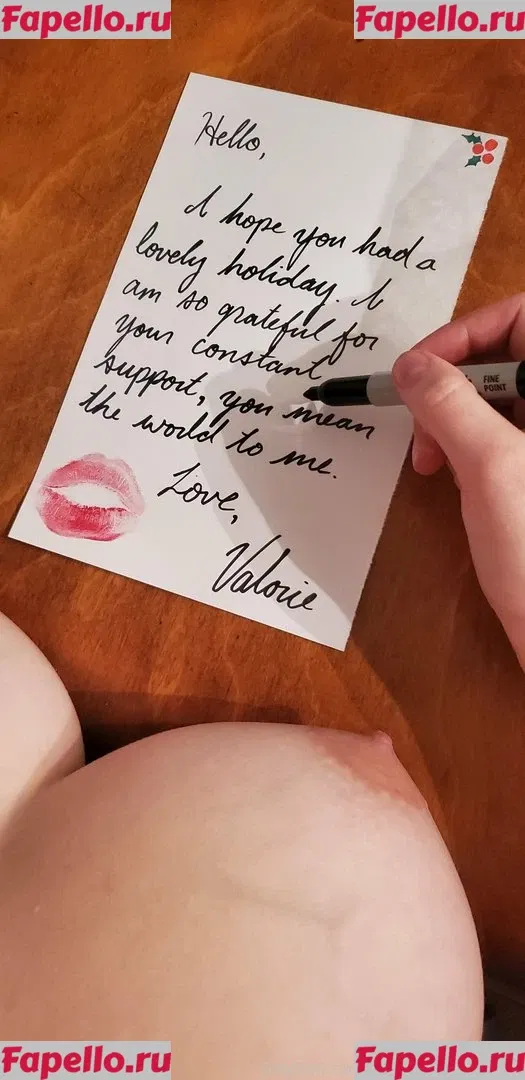 Fapello.ru Fapello.ru
Hello,
I hope you had a
lovely holiday. I
am so grateful for
your constant
support, you mean
the world to me.
Love,
Valorie
FINE
POINT
Fapello.ru Fapello.ru